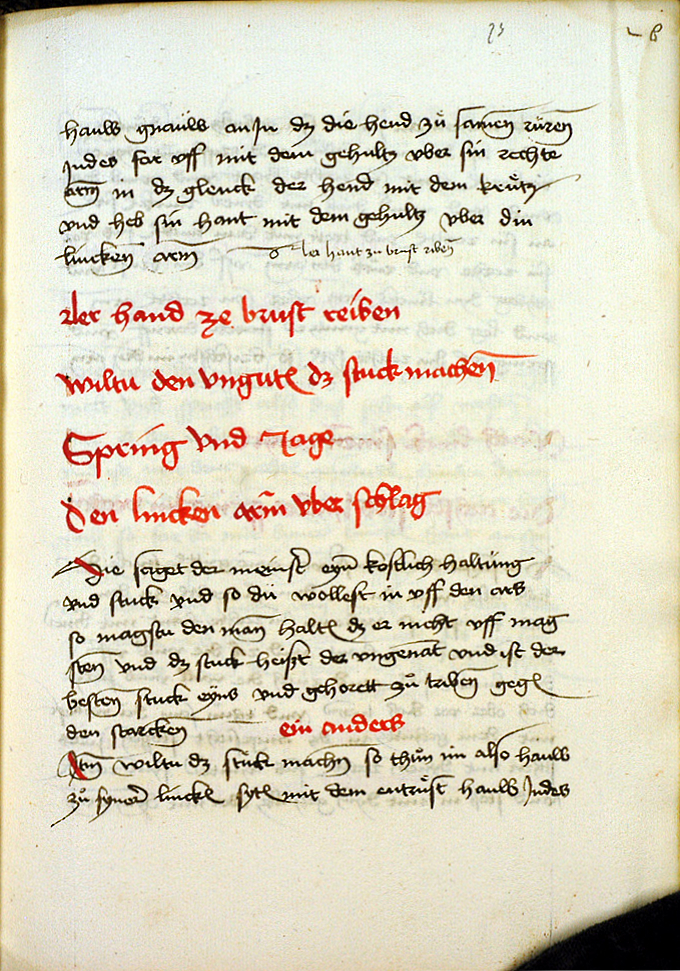 23
hauw gnäuw an In dz die hend zů samen rüren
Indes far vff mit dem gehultz vber sin rechte
arm in dz glenck der hend mit dem krütz
vnd heb sin hant mit dem gehultz vber din
lincken arm
aler hant zu brust riben
aler hand ze brust reiben
wiltu den vngutē dz stuck machen̄
Spring vnd Jage
den lincken arm̄ vber schlag
Hie seiget der meinstr̄ eyn̄ kostlich haltung
vnd stuck vnd so dü wollest in vff den ars
so magstu den man̄ haltē dz er nicht vff mag
sten̄ vnd dz stuck heist der vngenāt vnd ist der
besten̄ stuck eyns vnd gehorett zů triben̄ gegē
den starcken̄
ein anders
Itm̄ wiltu dz stůk machn̄ so thůn im also hauw
zů syner̄ linckē sytē mit dem entrüst hauw Indes